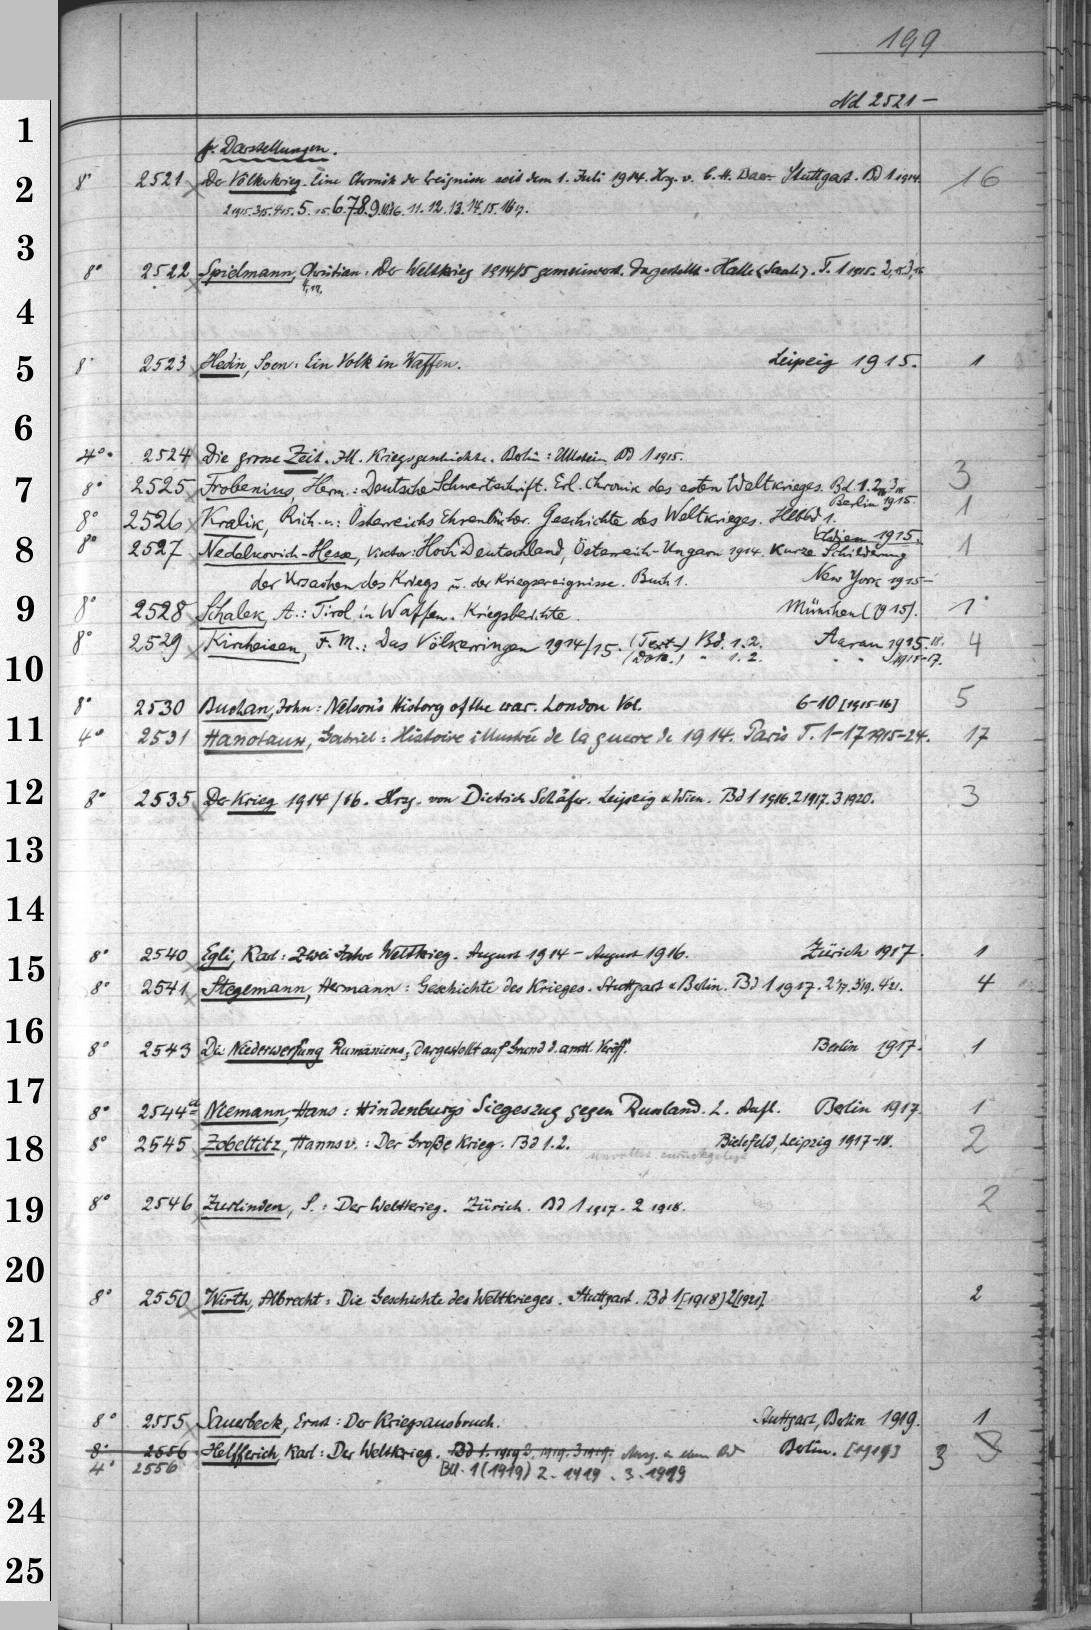 199
Nd 2521 —
1
β. Darstellungen.
2
8° 2521 Der Völkerkrieg. Eine Chronik der Ereignisse seit dem 1. Juli 1914. Hrg. v. C. H. Baer Stuttgart. Bd 1 1914. 16
2 1915. 3 15. 4 15. 5. 15. 6. 7. 8. 9. 10 16. 11. 12. 13. 14. 15. 16 17.
3
8° 2522 Spielmann, Christian: Der Weltkrieg 1914/15 gemeinverst. dargestellt. Halle (Saale). T. 1 1915. 2, 15. 3, 16
4, 17.
4
5
8° 2523 Hedin, Sven: Ein Volk in Waffen. Leipzig 1915. 1
6
4° 2524 Die grosse Zeit. Ill. Kriegsgeschichte. Berlin: Ullstein Bd 1 1915.
7
8° 2525 Frobenius, Herm.: Deutsche Schwertschrift. Erl. Chronik des ersten Weltkrieges. Bd. 1. 2. 3. 3
Berlin 1915.
8° 2526 Kralik, Rich. v.: Österreichs Ehrenbücher. Geschichte des Weltkrieges. Hlbbd 1. 1
Wien 1915.
8
8° 2527 Nedelkovich-Hesse, Victor: Hoch Deutschland, Österreich-Ungarn 1914. Kurze Schilderung 1
der Ursachen des Kriegs u. der Kriegsereignisse. Buch 1. New York 1915-
9
8° 2528 Schalek, A.: Tirol in Waffen. Kriegsberichte. München (1915). 1
8° 2529 Kircheisen, F. M.: Das Völkerringen 1914/15. (Text-) Bd. 1. 2. Aarau 1915. 4
10
(Dok.) " 1. 2. " " 1915-17.
8° 2530 Buchan, John: Nelson's History of the war. London Vol. 6-10 [1915-16] 5
11
4° 2531 Hanotaux, Gabriel: Histoire illustrée de la guerre de 1914. Paris T. 1-17 1915-24. 17
12
8° 2535 Der Krieg 1914/16. Hrsg. von Dietrich Schäfer. Leipzig & Wien. Bd 1 1916. 2 1917. 3 1920. 3
13
14
15
8° 2540 Egli, Karl: Zwei Jahre Weltkrieg. August 1914 - August 1916. Zürich 1917. 1
8° 2541 Stegemann, Hermann: Geschichte des Krieges. Stuttgart & Berlin. Bd 1 1917. 2 17. 3 19. 4 21. 4
16
8° 2543 Die Niederwerfung Rumäniens, dargestellt auf Grund d. amtl. Veröff. Berlin 1917. 1
17
8° 2544a Niemann, Hans: Hindenburgs Siegeszug gegen Russland. 2. Aufl. Berlin 1917 1
18
8° 2545 Zobeltitz, Hanns v.: Der Große Krieg. Bd 1. 2. Bielefeld, Leipzig 1917-18. 2
zurückgelegt
19
8° 2546 Zurlinden, S.: Der Weltkrieg. Zürich. Bd 1 1917. 2 1918. 2
20
8° 2550 Wirth, Albrecht: Die Geschichte des Weltkrieges. Stuttgart. Bd 1 [1918] 2 [1921]. 2
21
22
8° 2555 Sauerbeck, Ernst: Der Kriegsausbruch. Stuttgart, Berlin 1919. 1
23
8° 2556 Helfferich, Karl: Der Weltkrieg. Bd 1. 1919 2. 1919. 3 1919. Ausg. in einem Bd Berlin. [1919] 3 3
4° 2556 Bd. 1 (1919) 2. 1919. 3. 1919
24
25